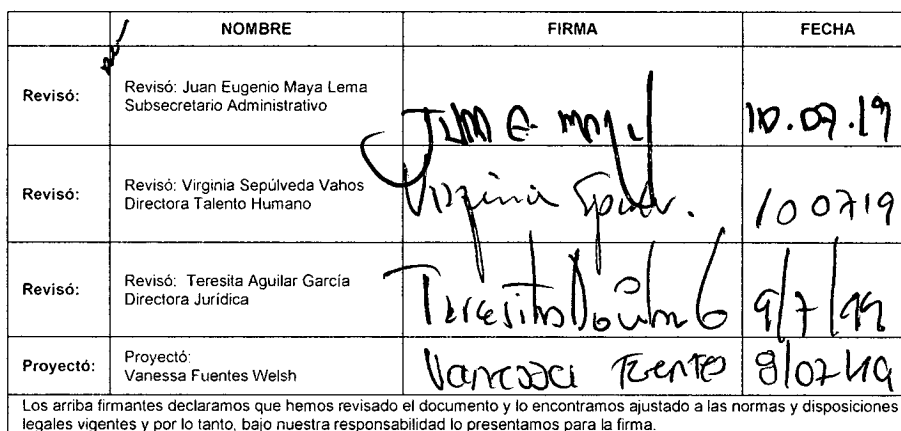 NOMBRE FIRMA FECHA
Revisó: Revisó: Juan Eugenio Maya Lema
Subsecretario Administrativo
Juan E maya 10.07.19
Revisó: Revisó: Virginia Sepúlveda Vahos
Directora Talento Humano
Virginia 100719
Revisó: Revisó: Teresita Aguilar García
Directora Jurídica
Teresita Aguilar G 9/7/19
Proyectó: Proyectó:
Vanessa Fuentes Welsh
Vanessa Fuentes 8/07/19
Los arriba firmantes declaramos que hemos revisado el documento y lo encontramos ajustado a las normas y disposiciones
legales vigentes y por lo tanto, bajo nuestra responsabilidad lo presentamos para la firma.